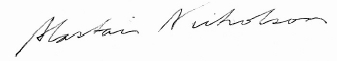 Alastair Nicholson